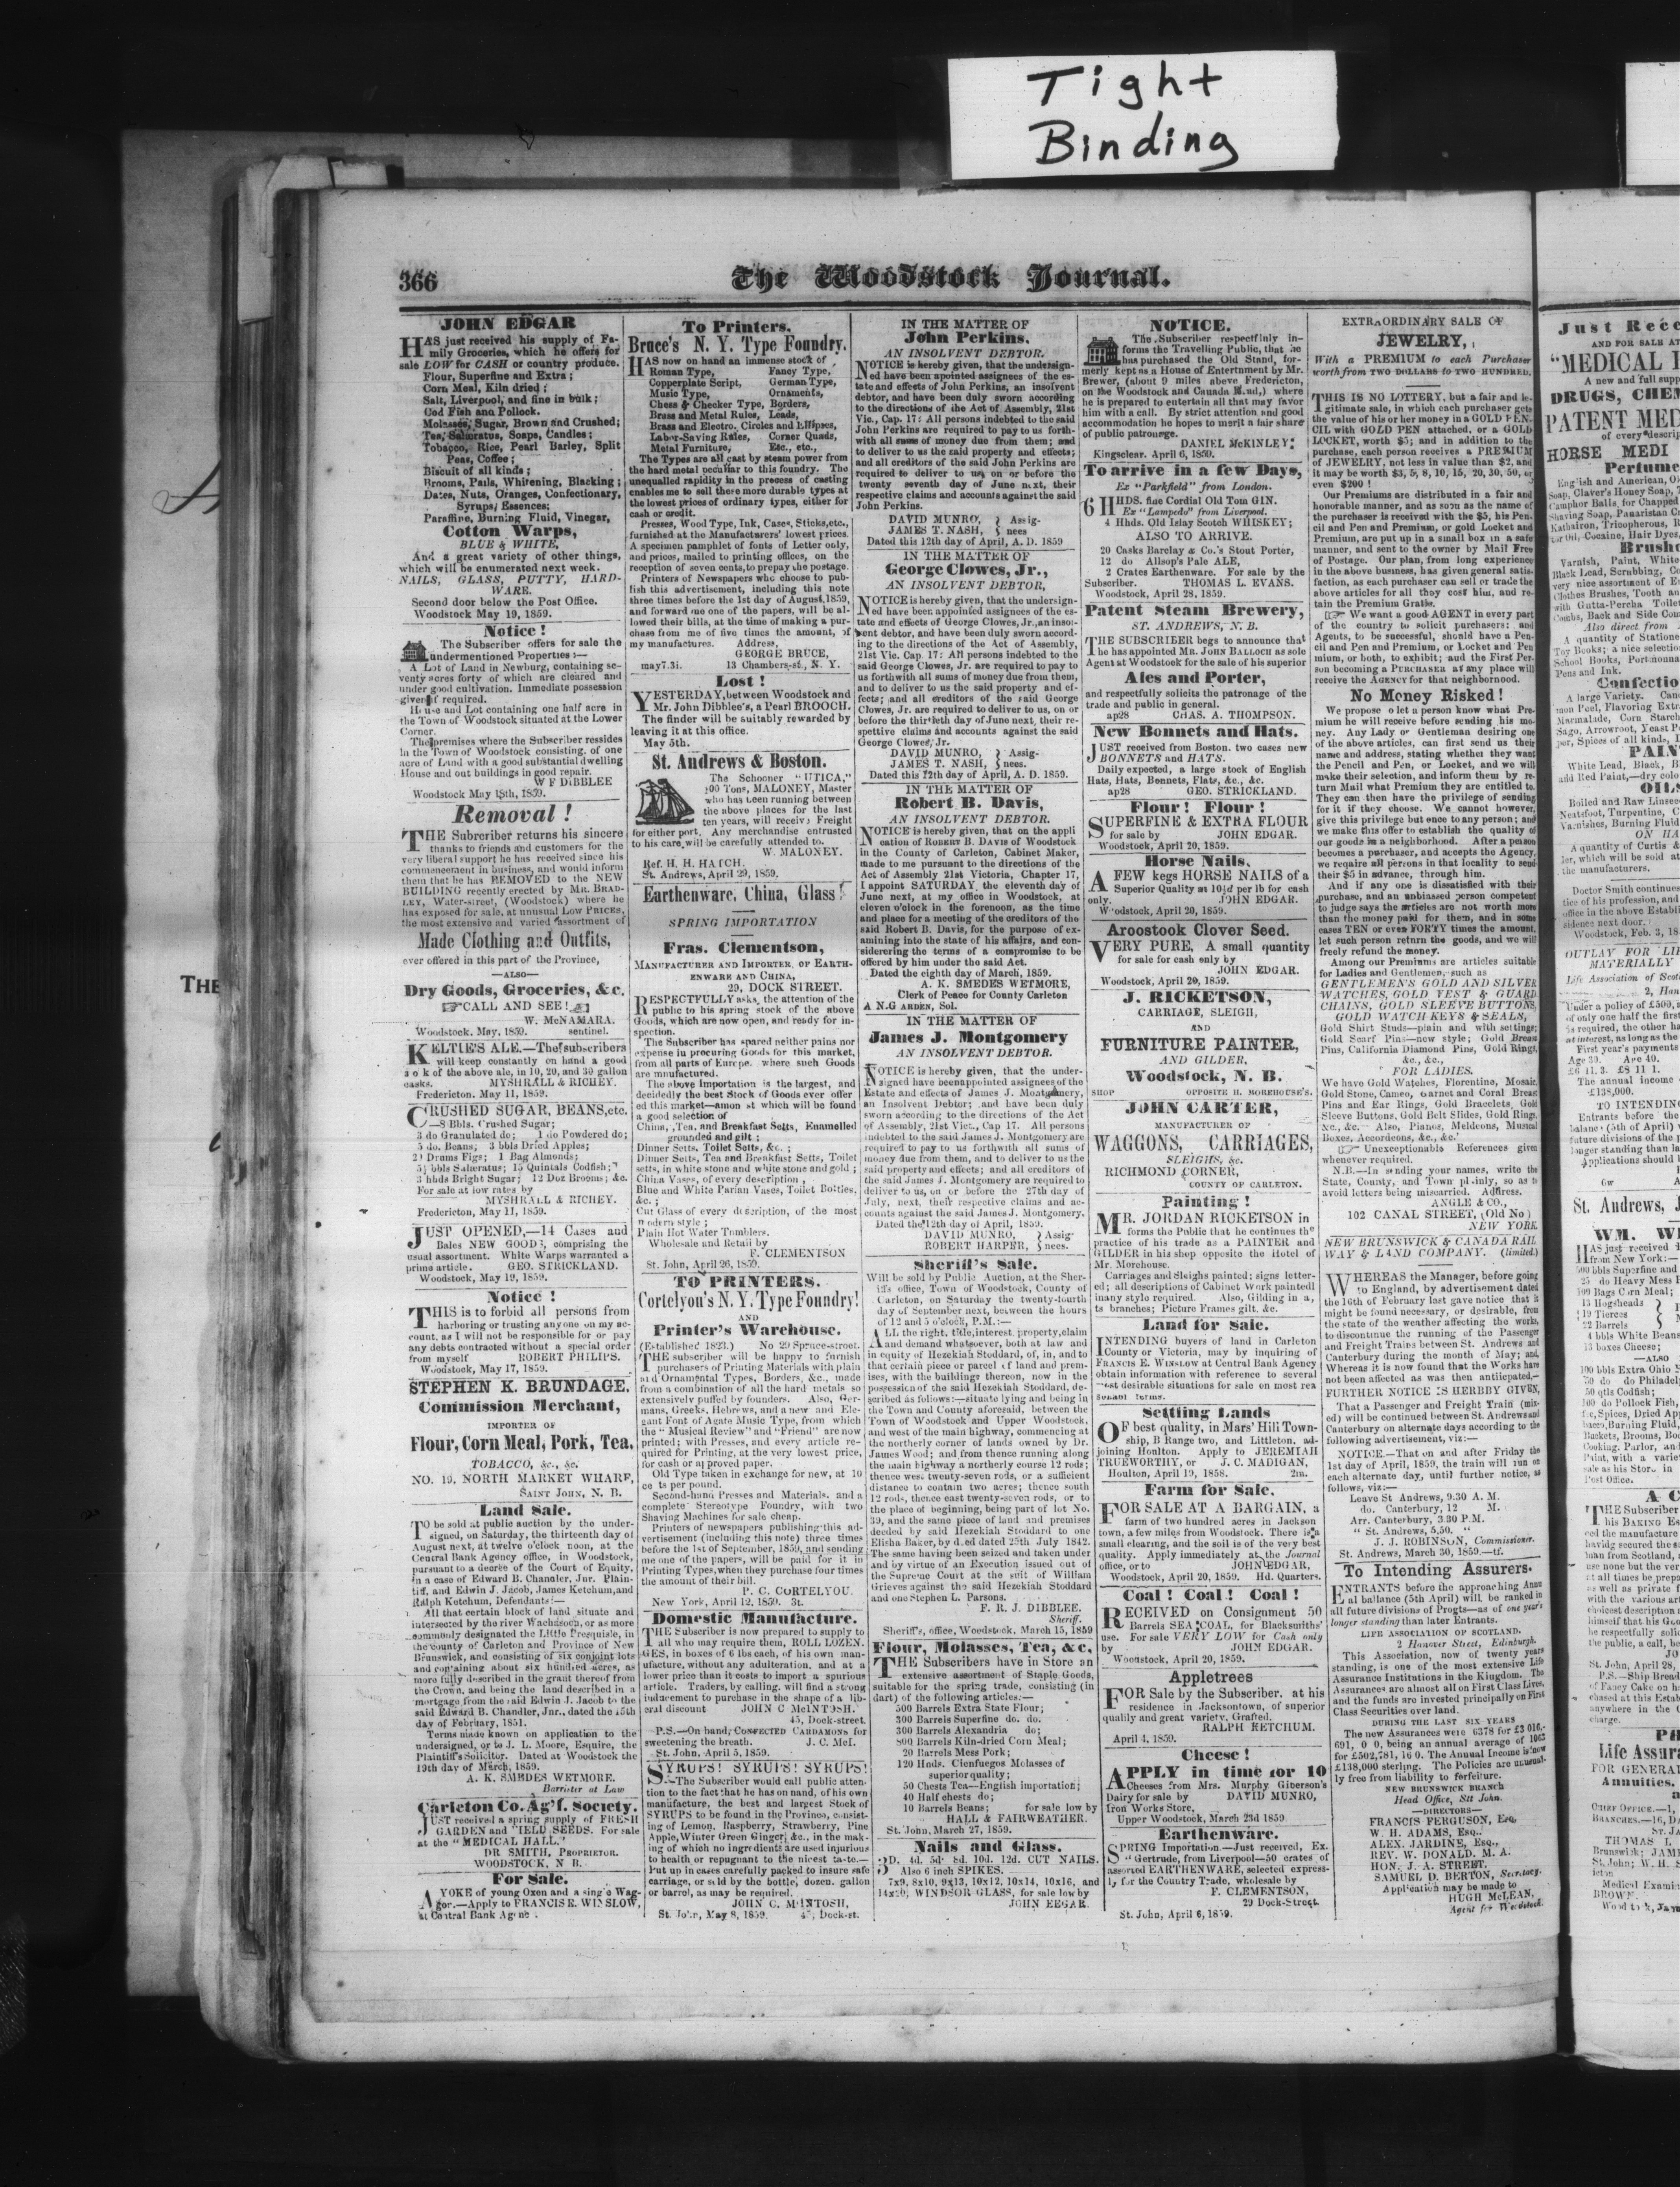 Tight
Binding
366
The Woodstock Journal.
JOHN EDGAR
HAS just received his supply of Fa-
mily Groceries, which he offers for
sale LOW for CASH or country produce.
Flour, Superfine and Extra;
Corn Meal, Kiln dried;
Salt, Liverpool, and fine in bulk;
Cod Fish and Pollock.
Molasses, Sugar, Brown and Crushed;
Tea, Saleratus, Soaps, Candles;
Tobacco, Rice, Pearl Barley, Split
Peas, Coffee;
Biscuit of all kinds;
Brooms, Pails, Whitening, Blacking;
Dates, Nuts, Oranges, Confectionary,
Syrups, Essences;
Paraffine, Burning Fluid, Vinegar,
Cotton Warps,
BLUE & WHITE,
And a great variety of other things,
which will be enumerated next week.
NAILS, GLASS, PUTTY, HARD-
WARE.
Second door below the Post Office.
Woodstock May 19, 1859.
Notice!
The Subscriber offers for sale the
undermentioned Properties:—
A Lot of Land in Newburg, containing se-
venty acres forty of which are cleared and
under good cultivation. Immediate possession
given if required.
House and Lot containing one half acre in
the Town of Woodstock situated at the Lower
Corner.
The premises where the Subscriber ressides
in the Town of Woodstock consisting, of one
acre of Land with a good substantial dwelling
House and out buildings in good repair.
W F DIBBLEE
Woodstock May 18th, 1859.
Removal!
THE Subrcriber returns his sincere
thanks to friends and customers for the
very liberal support he has received since his
commencement in business, and would inform
them that he has REMOVED to the NEW
BUILDING recently erected by MR. BRAD-
LEY, Water-street, (Woodstock) where he
has exposed for sale, at unusual LOW PRICES,
the most extensive and varied assortment of
Made Clothing and Outfits,
ever offered in this part of the Province,
—ALSO—
Dry Goods, Groceries, &c.
CALL AND SEE!
W. McNAMARA.
Woodstock. May, 1859. sentinel.
KELTIE'S ALE.—The subscribers
will keep constantly on hand a good
s o k of the above ale, in 10, 20, and 30 gallon
casks. MYSHRALL & RICHEY.
Fredericton. May 11, 1859.
CRUSHED SUGAR, BEANS, etc.
—8 Bbls. Crushed Sugar;
3 do Granulated do; 1 do Powdered do;
5 do. Beans; 3 bbls Dried Apples;
2 Drums Figs; 1 Bag Almonds;
5 bbls Salæratus; 15 Quintals Codfish;
3 hhds Bright Sugar; 12 Doz Brooms; &c.
For sale at low rates by
MYSHRALL & RICHEY.
Fredericton, May 11, 1859.
JUST OPENED,—14 Cases and
Bales NEW GOODS, comprising the
usual assortment. White Warps warranted a
prime article. GEO. STRICKLAND.
Woodstock, May 19, 1859.
Notice!
THIS is to forbid all persons from
harboring or trusting anyone on my ac-
count, as I will not be responsible for or pay
any debts contracted without a special order
from myself ROBERT PHILIPS.
Woodstock, May 17, 1859.
STEPHEN K. BRUNDAGE.
Commission Merchant,
IMPORTER OF
Flour, Corn Meal, Pork, Tea,
TOBACCO, &c., &c.
NO. 19. NORTH MARKET WHARF,
SAINT JOHN, N. B.
Land Sale.
TO be sold at public auction by the under-
signed, on Saturday, the thirteenth day of
August next, at twelve o'clock noon, at the
Central Bank Agency office, in Woodstock,
pursuant to a decree of the Court of Equity,
in a case of Edward B. Chandler, Jnr. Plain-
tiff, and Edwin J. Jacob, James Ketchum, and
Ralph Ketchum, Defendants:—
All that certain block of land situate and
intersected by the river Wachsoch, or as more
commonly designated the Little Presquisle, in
the county of Carleton and Province of New
Brunswick, and consisting of six conjoint lots
and containing about six hundred acres, as
more fully described in the grant thereof from
the Crown, and being the land described in a
mortgage from the said Edwin J. Jacob to the
said Edward B. Chandler, Jnr., dated the 15th
day of February, 1851.
Terms made known on application to the
undersigned, or to J. L. Moore, Esquire, the
Plaintiff's Solicitor. Dated at Woodstock the
19th day of March, 1859.
A. K. SMEDES WETMORE.
Barrister at Law
Carleton Co. Ag'l. Society.
JUST received a spring supply of FRESH
GARDEN and FIELD SEEDS. For sale
at the "MEDICAL HALL."
DR SMITH, PROPRIETOR.
WOODSTOCK, N B.
For Sale.
A YOKE of young Oxen and a single Wag-
gon.—Apply to FRANCIS E. WINSLOW,
at Central Bank Agency.
To Printers.
Bruce's N. Y. Type Foundry.
HAS now on hand an immense stock of
Roman Type, Fancy Type,
Copperplate Script, German Type,
Music Type, Ornaments,
Chess & Checker Type, Borders,
Brass and Metal Rules, Leads,
Brass and Electro. Circles and Ellipses,
Labor-Saving Rules, Corner Quads,
Metal Furniture, Etc., etc.,
The Types are all cast by steam power from
the hard metal peculiar to this foundry. The
unequalled rapidity in the process of casting
enables me to sell these more durable types at
the lowest prices of ordinary types, either for
cash or credit.
Presses, Wood Type, Ink, Cases, Sticks, etc.,
furnished at the Manufacturers' lowest prices.
A specimen pamphlet of fonts of Letter only,
and prices, mailed to printing offices, on the
reception of seven cents, to prepay the postage.
Printers of Newspapers who choose to pub-
lish this advertisement, including this note
three times before the 1st day of August, 1859,
and forward me one of the papers, will be al-
lowed their bills, at the time of making a pur-
chase from me of five times the amount, of
my manufactures. Address,
GEORGE BRUCE,
may7.3i. 13 Chambers-st., N. Y.
Lost!
YESTERDAY, between Woodstock and
Mr. John Dibblee's, a Pearl BROOCH.
The finder will be suitably rewarded by
leaving it at this office.
May 5th.
St. Andrews & Boston.
The Schooner "UTICA,"
100 Tons, MALONEY, Master
who has been running between
the above places for the last
ten years, will receive Freight
for either port. Any merchandise entrusted
to his care, will be carefully attended to.
W. MALONEY.
Ref. H. H. HATCH.
St. Andrews, April 29, 1859.
Earthenware, China, Glass!
SPRING IMPORTATION
Fras. Clementson,
MANUFACTURER AND IMPORTER, OF EARTH-
ENWARE AND CHINA,
29, DOCK STREET.
RESPECTFULLY asks the attention of the
public to his spring stock of the above
Goods, which are now open, and ready for in-
spection.
The Subscriber has spared neither pains nor
expense in procuring Goods for this market,
from all parts of Europe. where such Goods
are mnufactured.
The above Importation is the largest, and
decidedly the best Stock of Goods ever offer
ed this market—amon st which will be found
a good selection of
China, Tea, and Breakfast Setts, Enamelled
grounded and gilt;
Dinner Setts, Toilet Setts, &c.;
Dinner Setts, Tea and Breakfast Setts, Toilet
setts, in white stone and white stone and gold;
China Vases, of every description,
Blue and White Parian Vases, Toilet Bottles,
&c.;
Cut Glass of every description, of the most
modern style;
Plain Hot Water Tumblers.
Wholesale and Retail by
F. CLEMENTSON
St. John, April 26, 1859.
TO PRINTERS.
Cortelyou's N. Y. Type Foundry!
AND
Printer's Warehouse.
(Established 1823.) No 29 Spruce-street.
THE subscriber will be happy to furnish
purchasers of Printing Materials with plain
and Ornamental Types, Borders, &c., made
from a combination of all the hard metals so
extensively puffed by founders. Also, Ger-
mans, Greeks, Hebrews, and a new and Ele-
gant Font of Agate Music Type, from which
the "Musical Review" and "Friend" are now
printed; with Presses, and every article re-
quired for Printing, at the very lowest price,
for cash or approved paper.
Old Type taken in exchange for new, at 10
ce ts per pound.
Second-hand Presses and Materials. and a
complete Stereotype Foundry, with two
Shaving Machines for sale cheap.
Printers of newspapers publishing this ad-
vertisement (including this note) three times
before the 1st of September, 1859, and sending
me one of the papers, will be paid for it in
Printing Types, when they purchase four times
the amount of their bill.
P. C. CORTELYOU.
New York, April 12, 1859. 3t.
Domestic Manufacture.
THE Subscriber is now prepared to supply to
all who may require them, ROLL LOZEN-
GES, in boxes of 6 lbs each, of his own man-
ufacture, without any adulteration, and at a
lower price than it costs to import a spurious
article. Traders, by calling, will find a strong
inducement to purchase in the shape of a lib-
eral discount JOHN C McINTOSH.
45, Dock-street.
P.S.—On hand, CONFECTED CARDAMONS for
sweetening the breath. J. C. McI.
St. John, April 5, 1859.
SYRUPS! SYRUPS! SYRUPS!
—The Subscriber would call public atten-
tion to the fact that he has on hand, of his own
manufacture, the best and largest Stock of
SYRUPS to be found in the Province, consist-
ing of Lemon, Raspberry, Strawberry, Pine
Apple, Winter Green Ginger; &c., in the mak-
ing of which no ingredients are used injurious
to health or repugnant to the nicest taste.—
Put up in cases carefully packed to insure safe
carriage, or sold by the bottle, dozen, gallon
or barrel, as may be required.
JOHN C. McINTOSH,
St. John, May 8, 1859. 45, Dock-st.
IN THE MATTER OF
John Perkins.
AN INSOLVENT DEBTOR.
NOTICE is hereby given, that the undersign-
ed have been appointed assignees of the es-
tate and effects of John Perkins, an insolvent
debtor, and have been duly sworn according
to the directions of the Act of Assembly, 21st
Vic., Cap. 17: All persons indebted to the said
John Perkins are required to pay to us forth-
with all sums of money due from them; and
to deliver to us the said property and effects;
and all creditors of the said John Perkins are
required to deliver to us, on or before the
twenty seventh day of June next, their
respective claims and accounts against the said
John Perkins.
DAVID MUNRO, } Assig-
JAMES T. NASH, } nees
Dated this 12th day of April, A. D. 1859
IN THE MATTER OF
George Clowes, Jr.,
AN INSOLVENT DEBTOR,
NOTICE is hereby given, that the undersign-
ed have been appointed assignees of the es-
tate and effects of George Clowes, Jr., an insol-
vent debtor, and have been duly sworn accord-
ing to the directions of the Act of Assembly,
21st Vic. Cap. 17: All persons indebted to the
said George Clowes, Jr. are required to pay to
us forthwith all sums of money due from them,
and to deliver to us the said property and ef-
fects; and all creditors of the said George
Clowes, Jr. are required to deliver to us, on or
before the thirtieth day of June next, their re-
spettive claims and accounts against the said
George Clowes, Jr.
DAVID MUNRO, } Assig-
JAMES T. NASH, } nees.
Dated this 12th day of April, A. D. 1859.
IN THE MATTER OF
Robert B. Davis,
AN INSOLVENT DEBTOR.
NOTICE is hereby given, that on the appli
cation of ROBERT B. DAVIS of Woodstock
in the County of Carleton, Cabinet Maker,
made to me pursuant to the directions of the
Act of Assembly 21st Victoria, Chapter 17,
I appoint SATURDAY, the eleventh day of
June next, at my office in Woodstock, at
eleven o'clock in the forenoon, as the time
and place for a meeting of the creditors of the
said Robert B. Davis, for the purpose of ex-
amining into the state of his affairs, and con-
sidering the terms of a compromise to be
offered by him under the said Act.
Dated the eighth day of March, 1859.
A. K. SMEDES WETMORE,
Clerk of Peace for County Carleton
A N.G ARDEN, Sol.
IN THE MATTER OF
James J. Montgomery
AN INSOLVENT DEBTOR.
NOTICE is hereby given, that the under-
signed have been appointed assignees of the
Estate and effects of James J. Montgomery,
an Insolvent Debtor; and have been duly
sworn according to the directions of the Act
of Assembly, 21st Vict., Cap 17. All persons
indebted to the said James J. Montgomery are
required to pay to us forthwith all sums of
money due from them, and to deliver to us the
said property and effects; and all creditors of
the said James J. Montgomery are required to
deliver to us, on or before the 27th day of
July, next, their respective claims and ac-
counts against the said James J. Montgomery.
Dated the 12th day of April, 1859.
DAVID MUNRO, } Assig-
ROBERT HARPER, } nees.
Sheriff's Sale.
Will be sold by Public Auction, at the Sher-
iff's office, Town of Woodstock, County of
Carleton, on Saturday the twenty-fourth
day of September next, between the hours
of 12 and 5 o'clock, P.M.:—
ALL the right, title, interest, property, claim
and demand whatsoever, both at law and
in equity of Hezekiah Stoddard, of, in, and to
that certain piece or parcel of land and prem-
ises, with the buildings thereon, now in the
possession of the said Hezekiah Stoddard, de-
scribed as follows:—situate lying and being in
the Town and County aforesaid, between the
Town of Woodstock and Upper Woodstock,
and west of the main highway, commencing at
the northerly corner of lands owned by Dr.
James Wood; and from thence running along
the main highway a northerly course 12 rods;
thence west twenty-seven rods, or a sufficient
distance to contain two acres; thence south
12 rods, thence east twenty-seven rods, or to
the place of beginning, being part of lot No.
39, and the same piece of land and premises
deeded by said Hezekiah Stoddard to one
Elisha Baker, by deed dated 25th July 1842.
The same having been seized and taken under
and by virtue of an Execution issued out of
the Supreme Court at the suit of William
Grieves against the said Hezekiah Stoddard
and one Stephen L. Parsons.
F. R. J. DIBBLEE.
Sheriff.
Sheriff's, office, Woodstock, March 15, 1859
Flour, Molasses, Tea, &c.
THE Subscribers have in Store an
extensive assortment of Staple Goods,
suitable for the spring trade, consisting (in
dart) of the following articles:—
500 Barrels Extra State Flour;
300 Barrels Superfine do. do.
300 Barrels Alexandria do;
800 Barrels Kiln-dried Corn Meal;
20 Barrels Mess Pork;
120 Hnds. Cienfuegos Molasses of
superior quality;
50 Chests Tea—English importation;
40 Half chests do;
10 Barrels Beans; for sale low by
HALL & FAIRWEATHER.
St. John, March 27, 1859.
Nails and Glass.
3D. 4d. 5d. 8d. 10d. 12d. CUT NAILS.
Also 6 inch SPIKES.
7x9, 8x10, 9x13, 10x12, 10x14, 10x16, and
14x20, WINDSOR GLASS, for sale low by
JOHN EDGAR.
NOTICE.
The Subscriber respectfully in-
forms the Travelling Public, that he
has purchased the Old Stand, for-
merly kept as a House of Entertnment by Mr.
Brewer, (about 9 miles above Fredericton,
on the Woodstock and Canada Road,) where
he is prepared to entertain all that may favor
him with a call. By strict attention and good
accommodation he hopes to merit a fair share
of public patronege.
DANIEL McKINLEY.
Kingsclear. April 6, 1859.
To arrive in a few Days,
Ex "Parkfield" from London.
6 HHDS. fine Cordial Old Tom GIN.
Ex "Lampedo" from Liverpool.
4 Hhds. Old Islay Scotch WHISKEY;
ALSO TO ARRIVE.
20 Casks Barclay & Co.'s Stout Porter,
12 do Allsop's Pale ALE,
2 Crates Earthenware. For sale by the
Subscriber. THOMAS L. EVANS.
Woodstock, April 28, 1859.
Patent Steam Brewery,
ST. ANDREWS, N. B.
THE SUBSCRIBER begs to announce that
he has appointed MR. JOHN BALLOCH as sole
Agent at Woodstock for the sale of his superior
Ales and Porter,
and respectfully solicits the patronage of the
trade and public in general.
ap28 CHAS. A. THOMPSON.
New Bonnets and Hats.
JUST received from Boston. two cases new
BONNETS and HATS.
Daily expected, a large stock of English
Hats, Hats, Bonnets, Flats, &c., &c.
ap28 GEO. STRICKLAND.
Flour! Flour!
SUPERFINE & EXTRA FLOUR
for sale by JOHN EDGAR.
Woodstock, April 20, 1859.
Horse Nails.
A FEW kegs HORSE NAILS of a
Superior Quality at 10½d per lb for cash
only. JOHN EDGAR.
Woodstock, April 20, 1859.
Aroostook Clover Seed.
VERY PURE, A small quantity
for sale for cash only by
JOHN EDGAR.
Woodstock, April 20, 1859.
J. RICKETSON,
CARRIAGE, SLEIGH,
AND
FURNITURE PAINTER,
AND GILDER,
Woodstock, N. B.
SHOP OPPOSITE H. MOREHOUSE'S.
JOHN CARTER,
MANUFACTURER OF
WAGGONS, CARRIAGES,
SLEIGHS, &c.
RICHMOND CORNER,
COUNTY OF CARLETON.
Painting!
MR. JORDAN RICKETSON in
forms the Public that he continues the
practice of his trade as a PAINTER and
GILDER in his shop opposite the Hotel of
Mr. Morehouse.
Carriages and Sleighs painted; signs letter-
ed; all descriptions of Cabinet Work painted
inany style required. Also, Gilding in a,
ts branches; Picture Frames gilt. &c.
Land for Sale.
INTENDING buyers of land in Carleton
County or Victoria, may by inquiring of
FRANCIS E. WINSLOW at Central Bank Agency
obtain information with reference to several
most desirable situations for sale on most rea
sonant terms.
Settling Lands
OF best quality, in Mars' Hill Town-
ship, B Range two, and Littleton, ad-
joining Houlton. Apply to JEREMIAH
TRUEWORTHY, or J. C. MADIGAN,
Houlton, April 19, 1858. 2m.
Farm for Sale.
FOR SALE AT A BARGAIN, a
farm of two hundred acres in Jackson
town, a few miles from Woodstock. There is a
small clearing, and the soil is of the very best
quality. Apply immediately at the Journal
office, or to JOHN EDGAR,
Woodstock, April 20, 1859. Hd. Quarters.
Coal! Coal! Coal!
RECEIVED on Consignment 50
Barrels SEA COAL, for Blacksmiths'
use. For sale VERY LOW for Cash only
by JOHN EDGAR.
Woodstock, April 20, 1859.
Appletrees
FOR Sale by the Subscriber. at his
residence in Jacksontown, of superior
quality and great variety, Grafted.
RALPH KETCHUM.
April 4, 1859.
Cheese!
APPLY in time for 10
Cheeses from Mrs. Murphy Giberson's
Dairy for sale by DAVID MUNRO,
Iron Works Store,
Upper Woodstock, March 23d 1859
Earthenware.
SPRING Importation—Just received, Ex.
"Gertrude, from Liverpool—50 crates of
assorted EARTHENWARE, selected express-
ly for the Country Trade, wholesale by
F. CLEMENTSON,
29 Dock-Street.
St. John, April 6, 1859.
EXTRAORDINARY SALE OF
JEWELRY,
With a PREMIUM to each Purchaser
worth from TWO DOLLARS to TWO HUNDRED.
THIS IS NO LOTTERY, but a fair and le-
gitimate sale, in which each purchaser gets
the value of his or her money in a GOLD PEN-
CIL with GOLD PEN attached, or a GOLD
LOCKET, worth $5; and in addition to the
purchase, each person receives a PREMIUM
of JEWELRY, not less in value than $2, and
it may be worth $3, 5, 8, 10, 15, 20, 30, 50, or
even $200!
Our Premiums are distributed in a fair and
honorable manner, and as soon as the name of
the purchaser is received with the $5, his Pen-
cil and Pen and Premium, or gold Locket and
Premium, are put up in a small box in a safe
manner, and sent to the owner by Mail Free
of Postage. Our plan, from long experience
in the above business, has given general satis-
faction, as each purchaser can sell or trade the
above articles for all they cost him, and re-
tain the Premium Gratis.
We want a good AGENT in every part
of the country to solicit purchasers; and
Agents, to be successful, should have a Pen-
cil and Pen and Premium, or Locket and Pen
mium, or both, to exhibit; and the First Per-
son becoming a PURCHASER at any place will
receive the AGENCY for that neighborhood.
No Money Risked!
We propose o let a person know what Pre-
mium he will receive before sending his mo-
ney. Any Lady or Gentleman desiring one
of the above articles, can first send us their
name and address, stating whether they want
the Pencil and Pen, or Locket, and we will
make their selection, and inform them by re-
turn Mail what Premium they are entitled to.
They can then have the privilege of sending
for it if they choose. We cannot however,
give this privilege but once to any person; and
we make this offer to establish the quality of
our goods in a neighborhood. After a person
becomes a purchaser, and accepts the Agency,
we reqaire all persons in that locality to send
their $5 in advance, through him.
And if any one is dissatisfied with their
purchase, and an unbiassed person competent
to judge says the articles are not worth more
than the money paid for them, and in some
cases TEN or even FORTY times the amount,
let such person return the goods, and we will
freely refund the money.
Among our Premiums are articles suitable
for Ladies and Gentlemen, such as
GENTLEMEN'S GOLD AND SILVER
WATCHES, GOLD VEST & GUARD
CHAINS, GOLD SLEEVE BUTTONS,
GOLD WATCH KEYS & SEALS,
Gold Shirt Studs—plain and with settings;
Gold Scarf Pins—new style; Gold Breast
Pins, California Diamond Pins, Gold Rings,
&c., &c.,
FOR LADIES.
We have Gold Watches, Florentine, Mosaic,
Gold Stone, Cameo, Garnet and Coral Breast
Pins and Ear Rings, Gold Bracelets, Gold
Sleeve Buttons, Gold Belt Slides, Gold Rings,
&c., &c. Also, Pianos, Meldeons, Musical
Boxes, Accordeons, &c., &c.
Unexceptionable References given
whenever required.
N.B.—In sending your names, write the
State, County, and Town plainly, so as to
avoid letters being miscarried. Address.
ANGLE & CO.,
102 CANAL STREET, (Old No)
NEW YORK
NEW BRUNSWICK & CANADA RAIL
WAY & LAND COMPANY. (limited.)
WHEREAS the Manager, before going
to England, by advertisement dated
the 16th of February last gave notice that it
might be found necessary, or desirable, from
the state of the weather affecting the works,
to discontinue the running of the Passenger
and Freight Trains between St. Andrews and
Canterbury during the month of May; and,
Whereas it is now found that the Works have
not been affected as was then anticipated,—
FURTHER NOTICE IS HERBBY GIVEN,
That a Passenger and Freight Train (mix-
ed) will be continued between St. Andrews and
Canterbury on alternate days according to the
following advertisement, viz:—
NOTICE.—That on and after Friday the
1st day of April, 1859, the train will run on
each alternate day, until further notice, as
follows, viz:—
Leave St Andrews, 9.30 A. M.
do. Canterbury, 12 M.
Arr. Canterbury, 3.30 P.M.
" St. Andrews, 5.50. "
J. J. ROBINSON, Commissioner.
St. Andrews, March 30, 1859.—tf.
To Intending Assurers.
ENTRANTS before the approaching Annu
al ballance (5th April) will be ranked in
all future divisions of Progts—as of one year's
longer standing than later Entrants.
LIFE ASSOCIATION OF SCOTLAND.
2 Hanover Street, Edinburgh.
This Association, now of twenty years
standing, is one of the most extensive Life
Assurance Institutions in the Kingdom. The
Assurances are almost all on First Class Lives,
and the funds are invested principally on First
Class Securities over land.
DURING THE LAST SIX YEARS
The new Assurances were 6378 for £3 016,-
691, 0 0, being an annual average of 1063
for £502,781, 16 0. The Annual Income is now
£138,000 sterling. The Policies are unusual-
ly free from liability to forfeiture.
NEW BRUNSWICK BRANCH
Head Office, Stt John.
—DIRECTORS—
FRANCIS FERGUSON, Esq,
W. H. ADAMS, ESQ.,
ALEX. JARDINE, ESQ.,
REV. W. DONALD. M. A.
HON. J. A. STREET.
SAMUEL D. BERTON, Secretary.
Application may be made to
HUGH McLEAN,
Agent for Woodstock.
THE
Just Rece
AND FOR SALE AT
"MEDICAL
A new and full supp
DRUGS, CHEM
PATENT MED
of every descrip
HORSE MEDI
Perfume
Brush
PAIN
OILS
St. Andrews,
Life Assura
FOR GENERAL
Annuities.